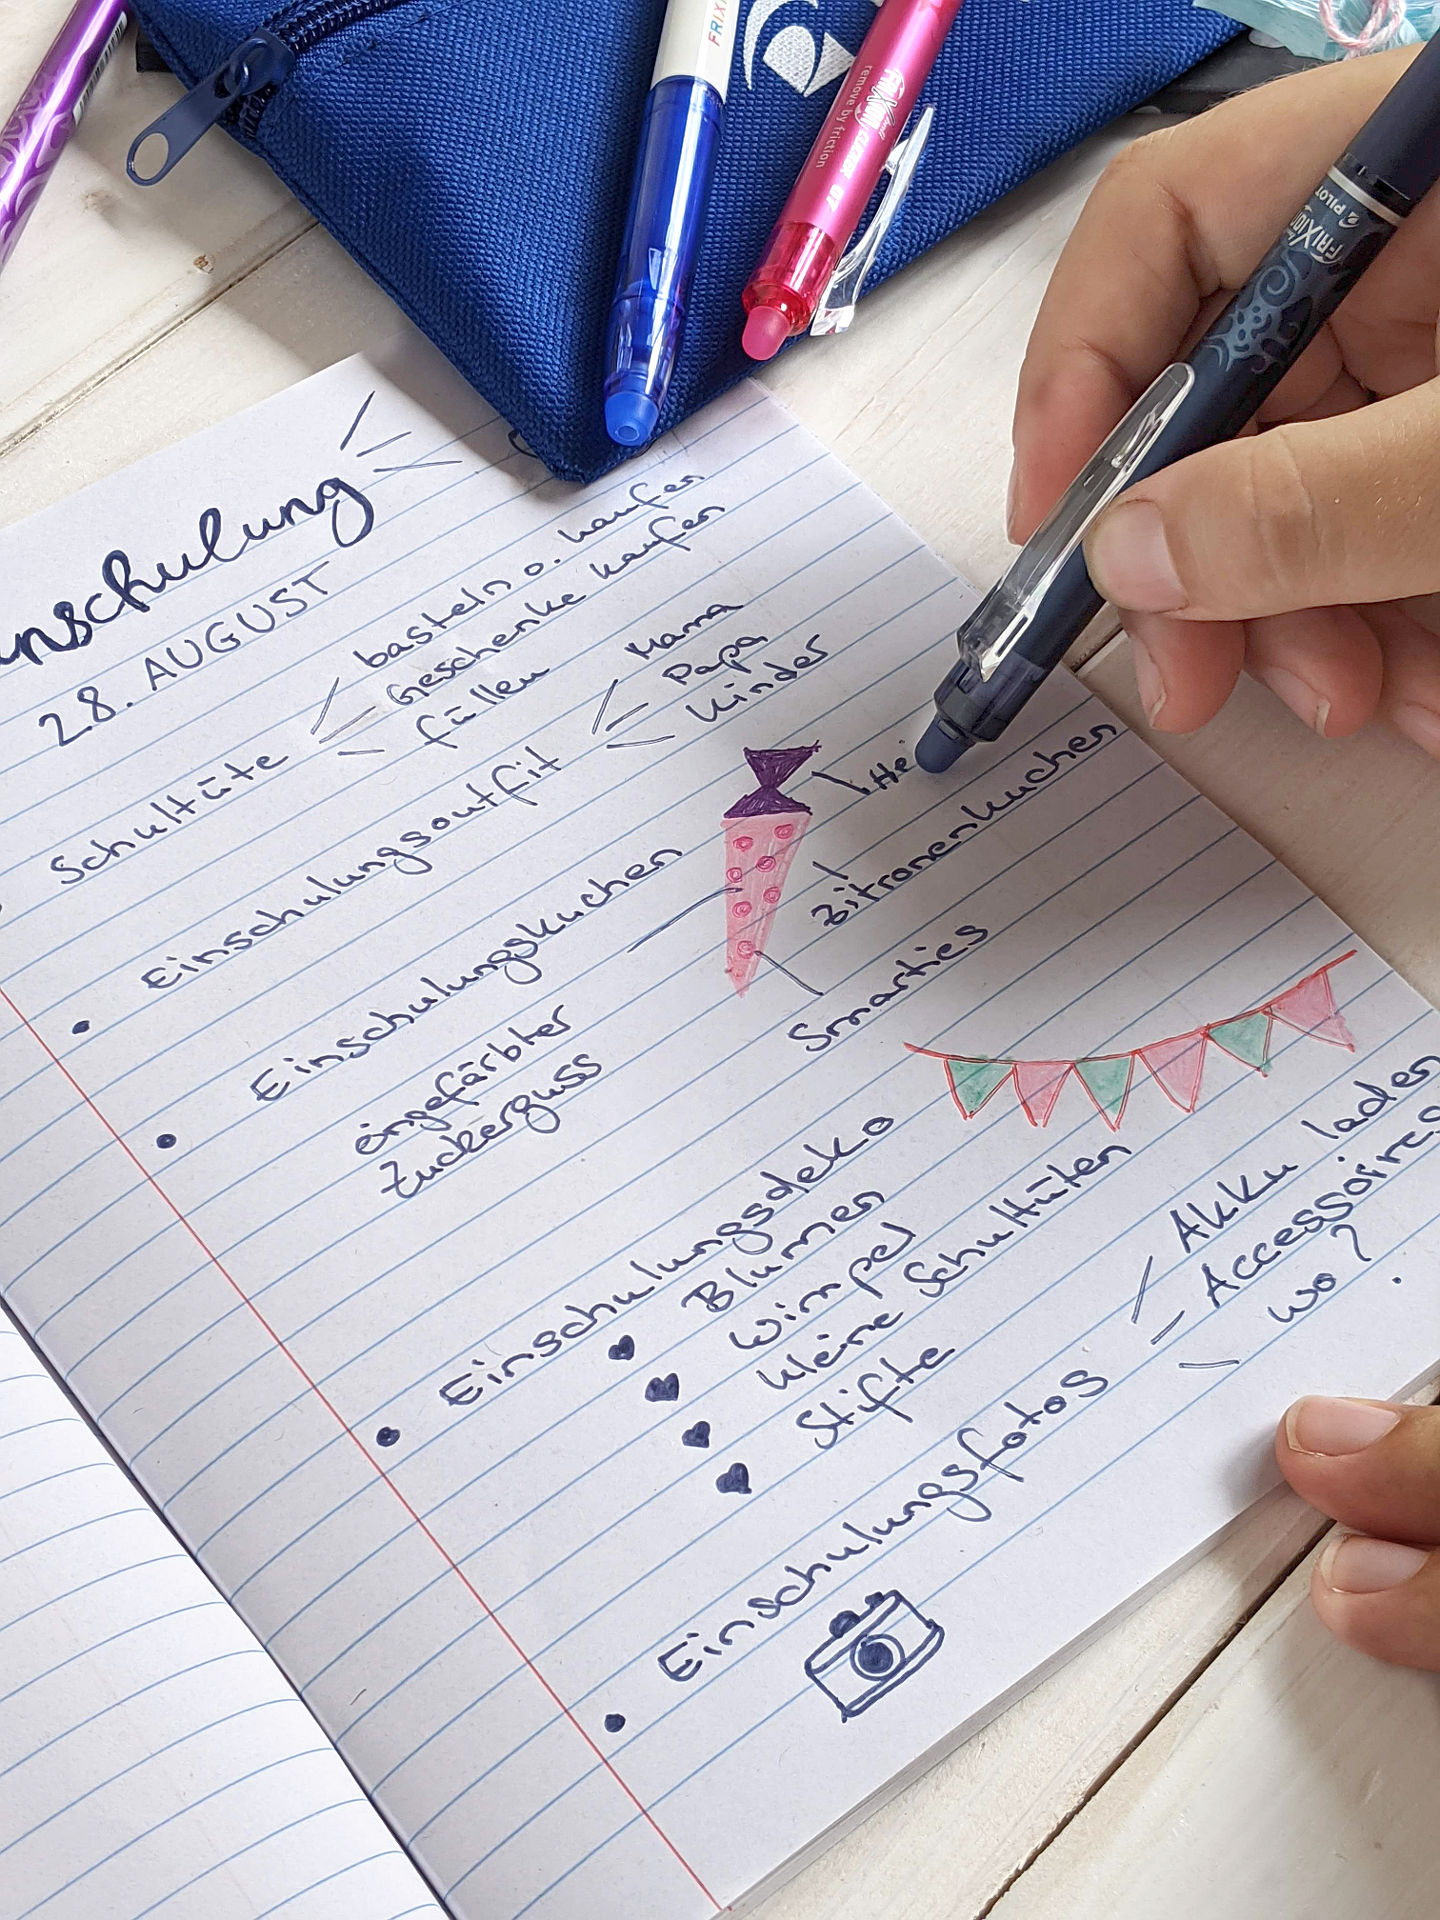 FRIXI
FRIXION CLICKER 07
remove by friction
FRIXION
PILOT
inschulung
28. AUGUST
Schultüte
basteln o. kaufen
Geschenke kaufen
füllen
Einschulungsoutfit
Mama
Papa
Kinder
Einschulungskuchen
Zitronenkuchen
Smarties
eingefärbter
Zuckerguss
Einschulungsdeko
Blumen
Wimpel
kleine Schultüten
Stifte
Einschulungsfotos
Akku laden
Accessoires
wo?